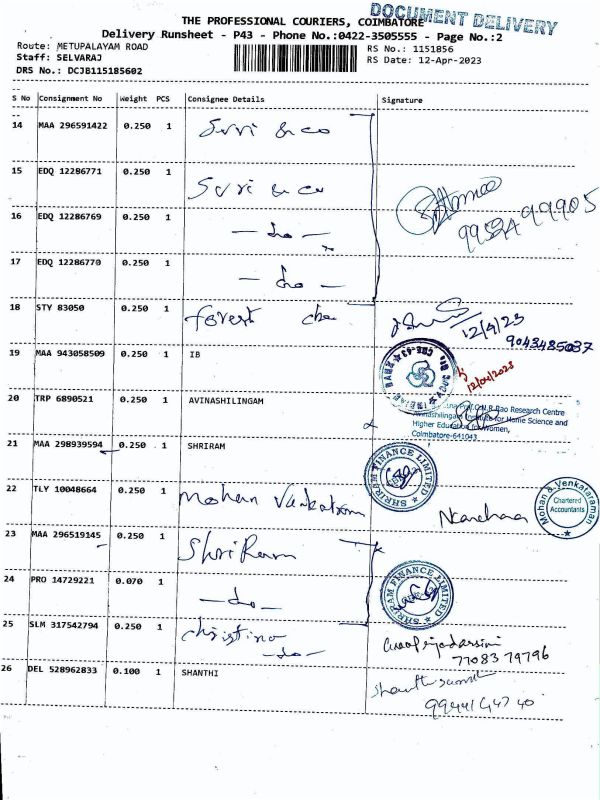 DOCUMENT DELIVERY
THE PROFESSIONAL COURIERS, COIMBATORE
Delivery Runsheet - P43 - Phone No.:0422-3505555 - Page No.:2
Route: METUPALAYAM ROAD
RS No.: 1151856
Staff: SELVARAJ
RS Date: 12-Apr-2023
DRS No.: DCJB115185602
S No Consignment No Weight PCS Consignee Details Signature
14 MAA 296591422 0.250 1 Suri & co
15 EDQ 12286771 0.250 1 Suri & co
16 EDQ 12286769 0.250 1 - do -
17 EDQ 12286770 0.250 1 - do -
99905
18 STY 83050 0.250 1 forest
12/4/23
9043485037
19 MAA 943058509 0.250 1 IB
12/04/2023
20 TRP 6890521 0.250 1 AVINASHILINGAM
Rao Research Centre
Avinashilingam Institute for Home Science and
Higher Education for Women,
Coimbatore-641043
21 MAA 298939594 0.250 1 SHRIRAM
SHRIRAM FINANCE LIMITED
22 TLY 10048664 0.250 1 Mohan Venkatram
Mohan & Venkataraman
Chartered
Accountants
23 MAA 296519145 0.250 1 Shri Ram
24 PRO 14729221 0.070 1 - do -
SHRIRAM FINANCE LIMITED
25 SLM 317542794 0.250 1 christina
- do -
77083 79796
26 DEL 528962833 0.100 1 SHANTHI